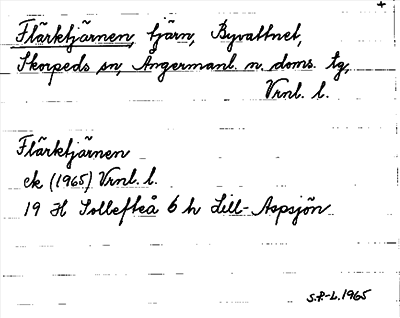 +
Flärktjärnen, tjärn, Byvattnet,
Skorpeds sn, Ångermanl. n. doms. tg,
Vrnl. l.
Flärktjärnen
ek (1965) Vrnl. l.
19 H Sollefteå 6 h Lill-Aspsjön
S.P-L. 1965